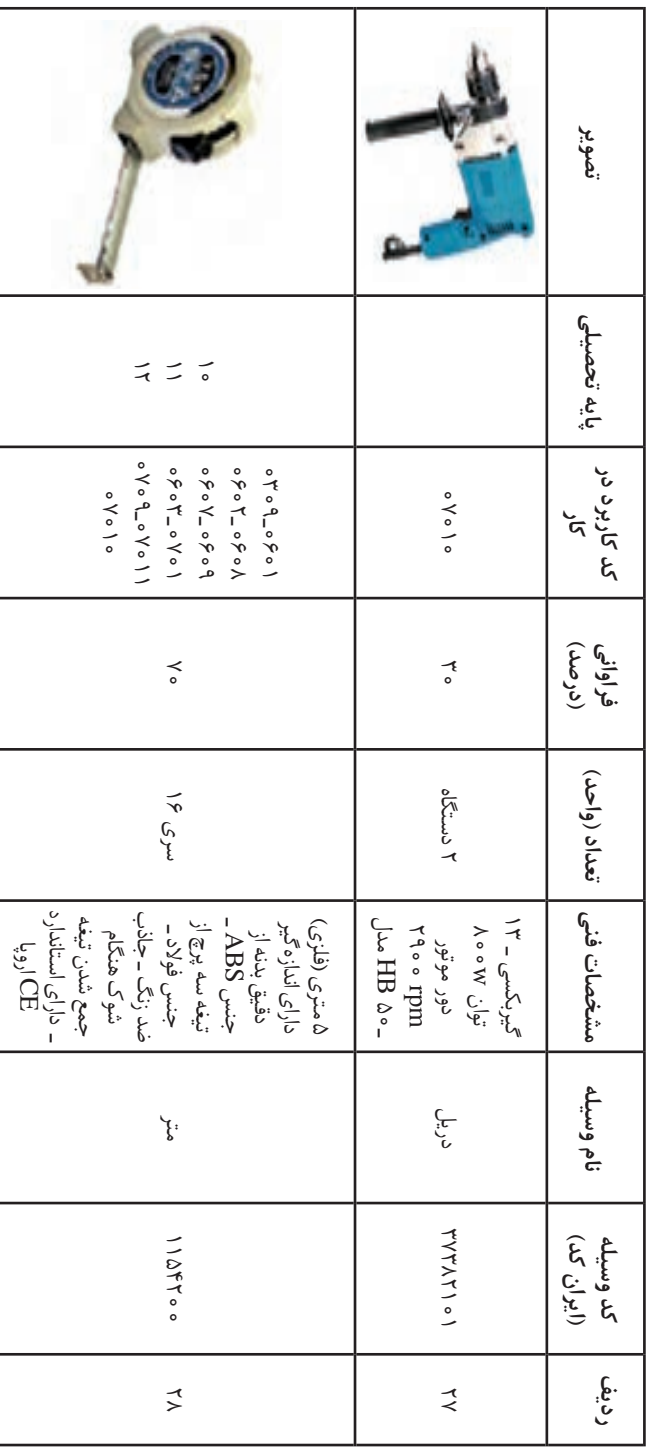 ردیف
کد وسیله
(ایران کد)
نام وسیله
مشخصات فنی
تعداد (واحد)
فراوانی
(درصد)
کد کاربرد در
کار
پایه تحصیلی
تصویر
۲۷
۳۷۳۸۲۱۰۱
دریل
گیربکسی ـ ۱۳
توان ۸۰۰W
دور موتور
۲۹۰۰ rpm
ـ HB ۵۰ مدل
۲ دستگاه
۳۰
۰۷۰۱۰
۲۸
۱۱۵۴۲۰۰
متر
۵ متری (فلزی)
دارای اندازه‌گیر
دقیق بدنه از
جنس ABS ـ
تیغه سه پرچ از
جنس فولاد ـ
ضد زنگ ـ جاذب
شوک هنگام
جمع شدن تیغه
ـ دارای استاندارد
CE اروپا
سری ۱۶
۷۰
۰۳۰۹ـ۰۶۰۱
۰۶۰۲ـ۰۶۰۸
۰۶۰۷ـ۰۶۰۹
۰۶۰۳ـ۰۷۰۱
۰۷۰۹ـ۰۷۰۱۱
۰۷۰۱۰
۱۰
۱۱
۱۲